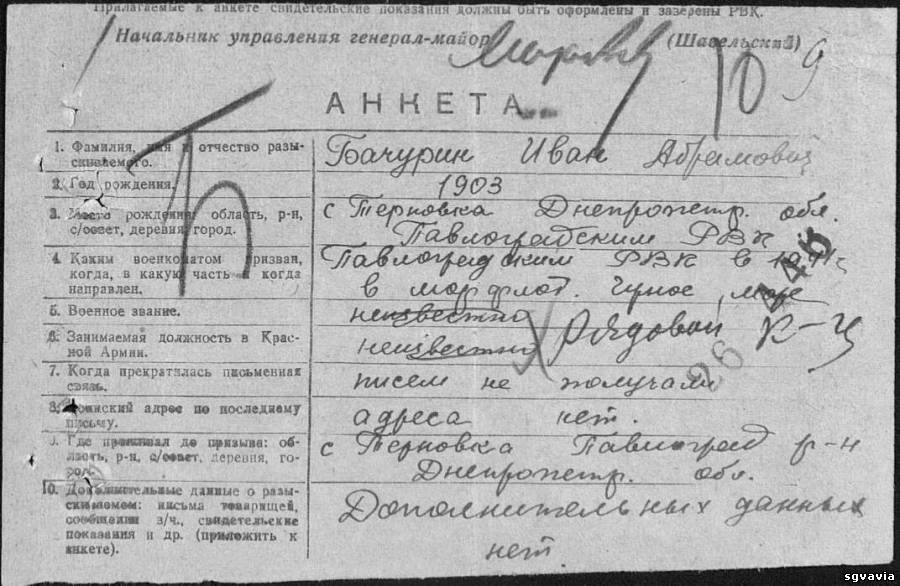 Прилагаемые к анкете свидетельские показания должны быть оформлены и заверены РВК.
Начальник управления генерал-майор (Шавельский)
10 9
АНКЕТА
1. Фамилия, имя и отчество разыскиваемого.
Бачурин Иван Абрамович
2. Год рождения.
1903
3. Место рождения: область, р-н, с/совет, деревня, город.
с Терновка Днепропетр. обл.
Павлоградским РВК
4. Каким военкоматом призван, когда, в какую часть и когда направлен.
Павлоградским РВК в
в морфлот. море
5. Военное звание.
неизвестно Рядовой К-ц
6. Занимаемая должность в Красной Армии.
неизвестно
7. Когда прекратилась письменная связь.
писем не получали
8. Воинский адрес по последнему письму.
адреса нет.
9. Где проживал до призыва: область, р-н, с/совет, деревня, город.
с Терновка Павлоград р-н
Днепропетр. обл.
10. Дополнительные данные о разыскиваемом: письма товарищей, сообщения в/ч., свидетельские показания и др. (приложить к анкете).
Дополнительных данных
нет
sgvavia